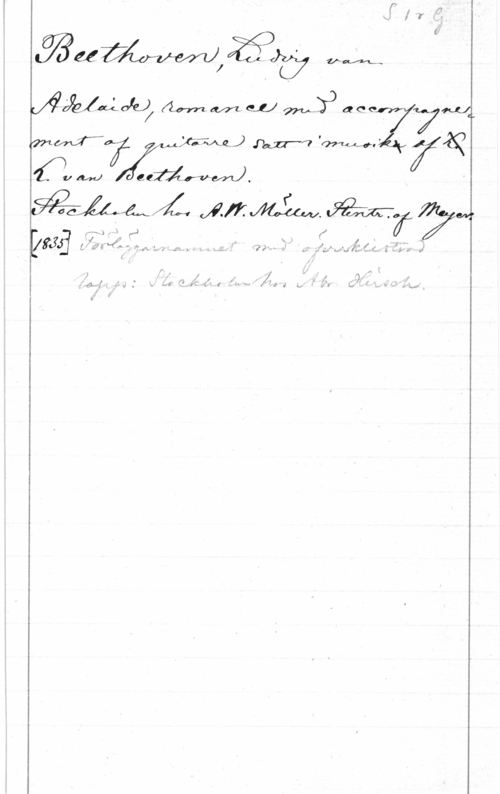 S 1 r G
Beethoven, Ludvig van
Adelaide, romance med accompagne-
ment af guitarre satt i musik af
L. van Beethoven.
Stockholm hos A.W. Möller. Stentr. af Meyer.
[1835] Förläggarnamnet med
tapp: Stockholm hos Abr. Hirsch.